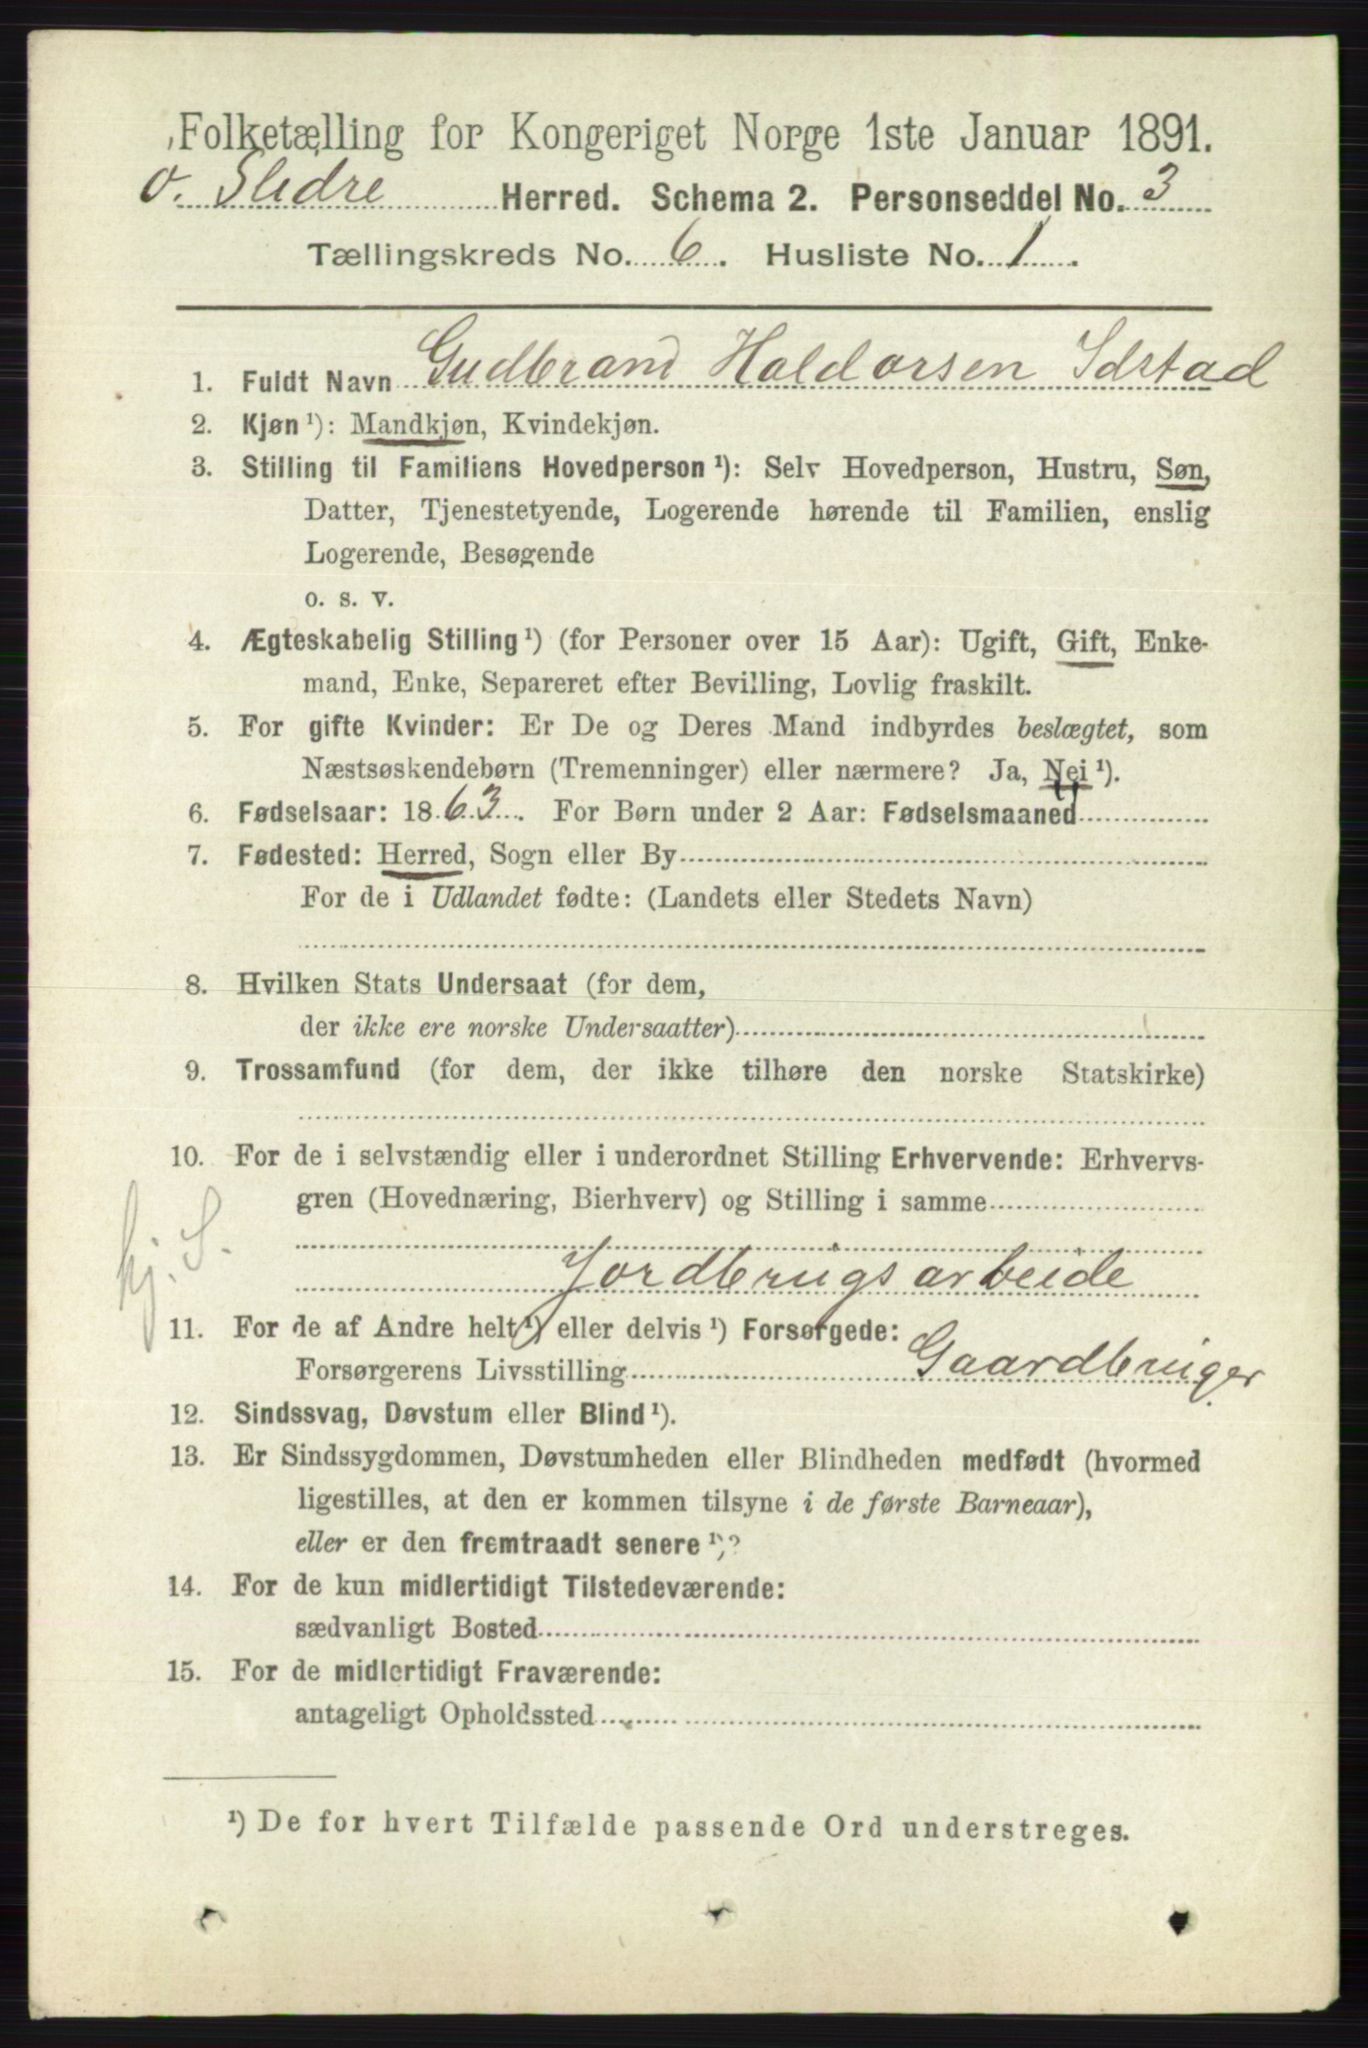 Folketælling for Kongeriget Norge 1ste Januar 1891.
v. Slidre Herred. Schema 2. Personseddel No. 3
Tællingskreds No. 6. Husliste No. 1.
1. Fuldt Navn Gudbrand Haldorsen Idstad
2. Kjøn ¹): Mandkjøn, Kvindekjøn.
3. Stilling til Familiens Hovedperson ¹): Selv Hovedperson, Hustru, Søn,
Datter, Tjenestetyende, Logerende hørende til Familien, enslig
Logerende, Besøgende
o. s. v.
4. Ægteskabelig Stilling ¹) (for Personer over 15 Aar): Ugift, Gift, Enke-
mand, Enke, Separeret efter Bevilling, Lovlig fraskilt.
5. For gifte Kvinder: Er De og Deres Mand indbyrdes beslægtet, som
Næstsøskendebørn (Tremenninger) eller nærmere? Ja, Nei ¹).
6. Fødselsaar: 1863. For Børn under 2 Aar: Fødselsmaaned
7. Fødested: Herred, Sogn eller By
For de i Udlandet fødte: (Landets eller Stedets Navn)
8. Hvilken Stats Undersaat (for dem,
der ikke ere norske Undersaatter)
9. Trossamfund (for dem, der ikke tilhøre den norske Statskirke)
10. For de i selvstændig eller i underordnet Stilling Erhvervende: Erhvervs-
gren (Hovednæring, Bierhverv) og Stilling i samme
kj. S.
Jordbrugsarbeide
11. For de af Andre helt ¹) eller delvis ¹) Forsørgede:
Forsørgerens Livsstilling Gaardbruger.
12. Sindssvag, Døvstum eller Blind ¹).
13. Er Sindssygdommen, Døvstumheden eller Blindheden medfødt (hvormed
ligestilles, at den er kommen tilsyne i de første Barneaar),
eller er den fremtraadt senere ¹)?
14. For de kun midlertidigt Tilstedeværende:
sædvanligt Bosted
15. For de midlertidigt Fraværende:
antageligt Opholdssted
¹) De for hvert Tilfælde passende Ord understreges.